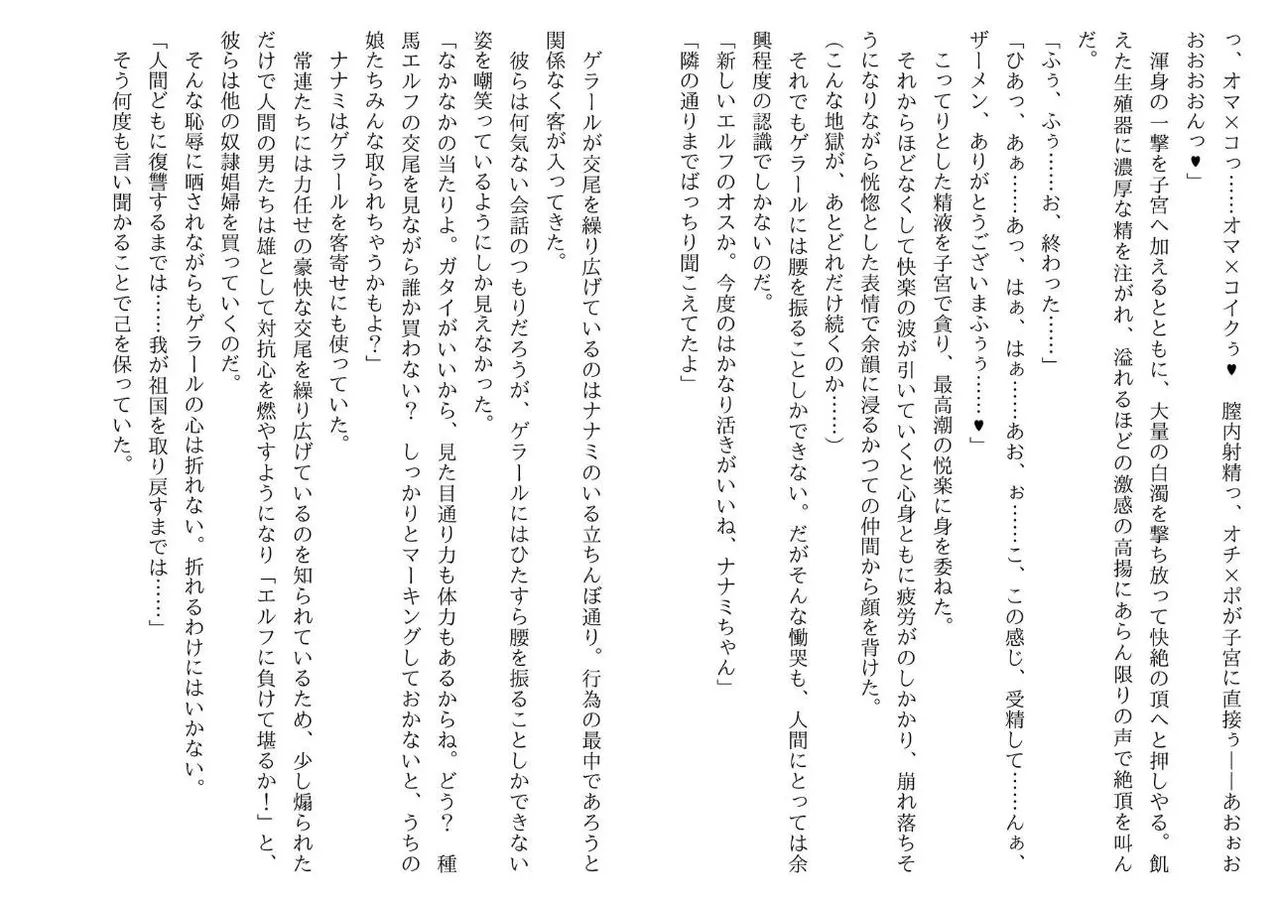 っ、オマ×コっ……オマ×コイクぅ♥　膣内射精っ、オチ×ポが子宮に直接ぅ――あおぉお
おおおおんっ♥」
　渾身の一撃を子宮へ加えるとともに、大量の白濁を撃ち放って快絶の頂へと押しやる。飢
えた生殖器に濃厚な精を注がれ、溢れるほどの激感の高揚にあらん限りの声で絶頂を叫ん
だ。
「ふぅ、ふぅ……お、終わった……」
「ひあっ、あぁ……あっ、はぁ、はぁ……あお、ぉ……こ、この感じ、受精して……んぁ、
ザーメン、ありがとうございまふぅぅ……♥」
　こってりとした精液を子宮で貪り、最高潮の悦楽に身を委ねた。
　それからほどなくして快楽の波が引いていくと心身ともに疲労がのしかかり、崩れ落ちそ
うになりながら恍惚とした表情で余韻に浸るかつての仲間から顔を背けた。
（こんな地獄が、あとどれだけ続くのか……）
　それでもゲラールには腰を振ることしかできない。だがそんな慟哭も、人間にとっては余
興程度の認識でしかないのだ。
「新しいエルフのオスか。今度のはかなり活きがいいね、ナナミちゃん」
「隣の通りまでばっちり聞こえてたよ」
　ゲラールが交尾を繰り広げているのはナナミのいる立ちんぼ通り。行為の最中であろうと
関係なく客が入ってきた。
　彼らは何気ない会話のつもりだろうが、ゲラールにはひたすら腰を振ることしかできない
姿を嘲笑っているようにしか見えなかった。
「なかなかの当たりよ。ガタイがいいから、見た目通り力も体力もあるからね。どう？　種
馬エルフの交尾を見ながら誰か買わない？　しっかりとマーキングしておかないと、うちの
娘たちみんな取られちゃうかもよ？」
　ナナミはゲラールを客寄せにも使っていた。
　常連たちには力任せの豪快な交尾を繰り広げているのを知られているため、少し煽られた
だけで人間の男たちは雄として対抗心を燃やすようになり「エルフに負けて堪るか！」と、
彼らは他の奴隷娼婦を買っていくのだ。
　そんな恥辱に晒されながらもゲラールの心は折れない。折れるわけにはいかない。
「人間どもに復讐するまでは……我が祖国を取り戻すまでは……」
　そう何度も言い聞かることで己を保っていた。